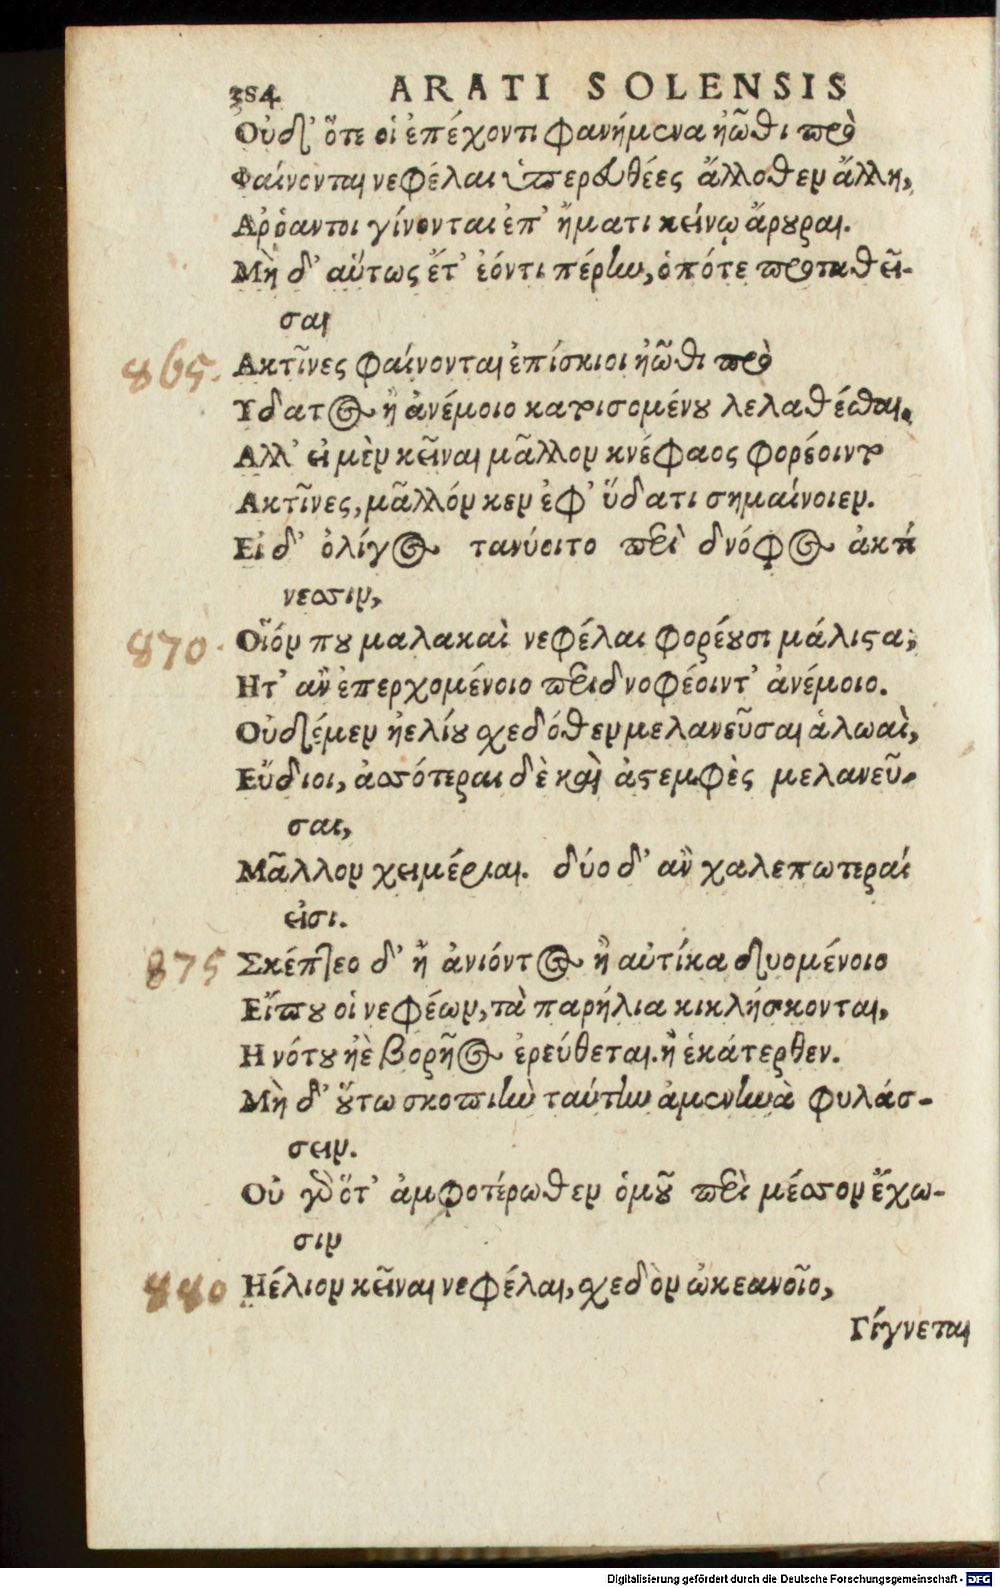 384 ARATI SOLENSIS
Οὐδ' ὅτε οἱ ἐπέχοντι φανήμεναι ἠῶθι πρὸ
Φαίνονται νεφέλαι ὑπερευθέες ἄλλοθεν ἄλλη,
Αῤῥαντοι γίνονται ἐπ' ἤματι κείνῳ ἄρουραι.
Μὴ δ' αὔτως ἔτ' ἐόντι πέρην, ὁπότε προταθεῖ-
σαι
865. Ακτῖνες φαίνονται ἐπίσκιοι ἠῶθι πρὸ
Υδατος ἢ ἀνέμοιο κατισομένου λελαθέσθαι.
Αλλ' εἰ μὲν κεῖναι μᾶλλον κνέφαος φορέοιντο
Ακτῖνες, μᾶλλόν κεν ἐφ' ὕδατι σημαίνοιεν.
Εἰ δ' ὀλίγος τανύοιτο περὶ δνόφος ἀκτί
νεσσιν,
870. Οἷόν που μαλακαὶ νεφέλαι φορέουσι μάλιστα,
Ητ' ἂν ἐπερχομένοιο περιδνοφέοιντ' ἀνέμοιο.
Οὐδέμεν ἠελίου σχεδόθεν μελανεῦσαι ἁλωαὶ,
Εὔδιοι, ἀσσότεραι δὲ καὶ ἀστεμφὲς μελανεῦ-
σαι,
Μᾶλλον χειμέριαι. δύο δ' ἂν χαλεπωτεραί
εἰσι.
875 Σκέπτεο δ' ἢ ἀνιόντος ἢ αὐτίκα δυομένοιο
Εἴπου οἱ νεφέων, τὰ παρήλια κικλήσκονται,
Η νότου ἠὲ βορῆος ἐρεύθεται. ἢ ἑκάτερθεν.
Μὴ δ' οὕτω σκοπιὴν ταύτην ἀμενηνὰ φυλάσ-
σειν.
Οὐ γὰρ ὅτ' ἀμφοτέρωθεν ὁμοῦ περὶ μέσσον ἔχω-
σιν
880 Ηέλιον κεῖναι νεφέλαι, σχεδὸν ὠκεανοῖο,
Γίγνεται
Digitalisierung gefördert durch die Deutsche Forschungsgemeinschaft - DFG